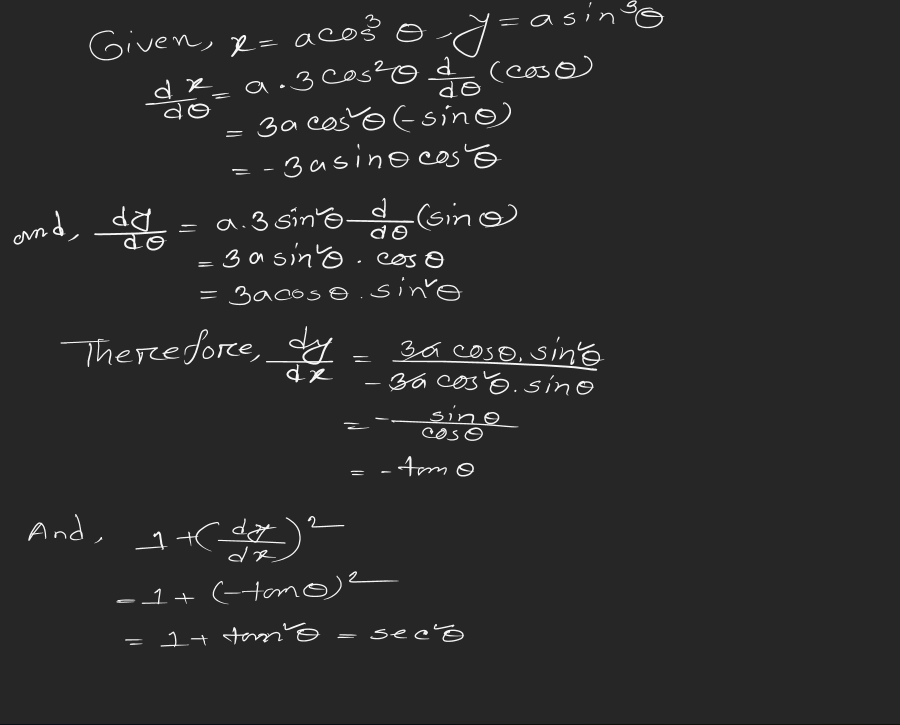 Given, x = acos³θ, y = asin³θ
dx/dθ = a.3cos²θ d/dθ (cosθ)
= 3a cos²θ (-sinθ)
= -3asinθ cos²θ
and, dy/dθ = a.3sin²θ d/dθ (sinθ)
= 3a sin²θ . cosθ
= 3acosθ . sin²θ
Therefore, dy/dx = 3a cosθ. sin²θ / -3a cos²θ. sinθ
= - sinθ/cosθ
= -tanθ
And, 1+(dy/dx)²
= 1+ (-tanθ)²
= 1+ tan²θ = sec²θ